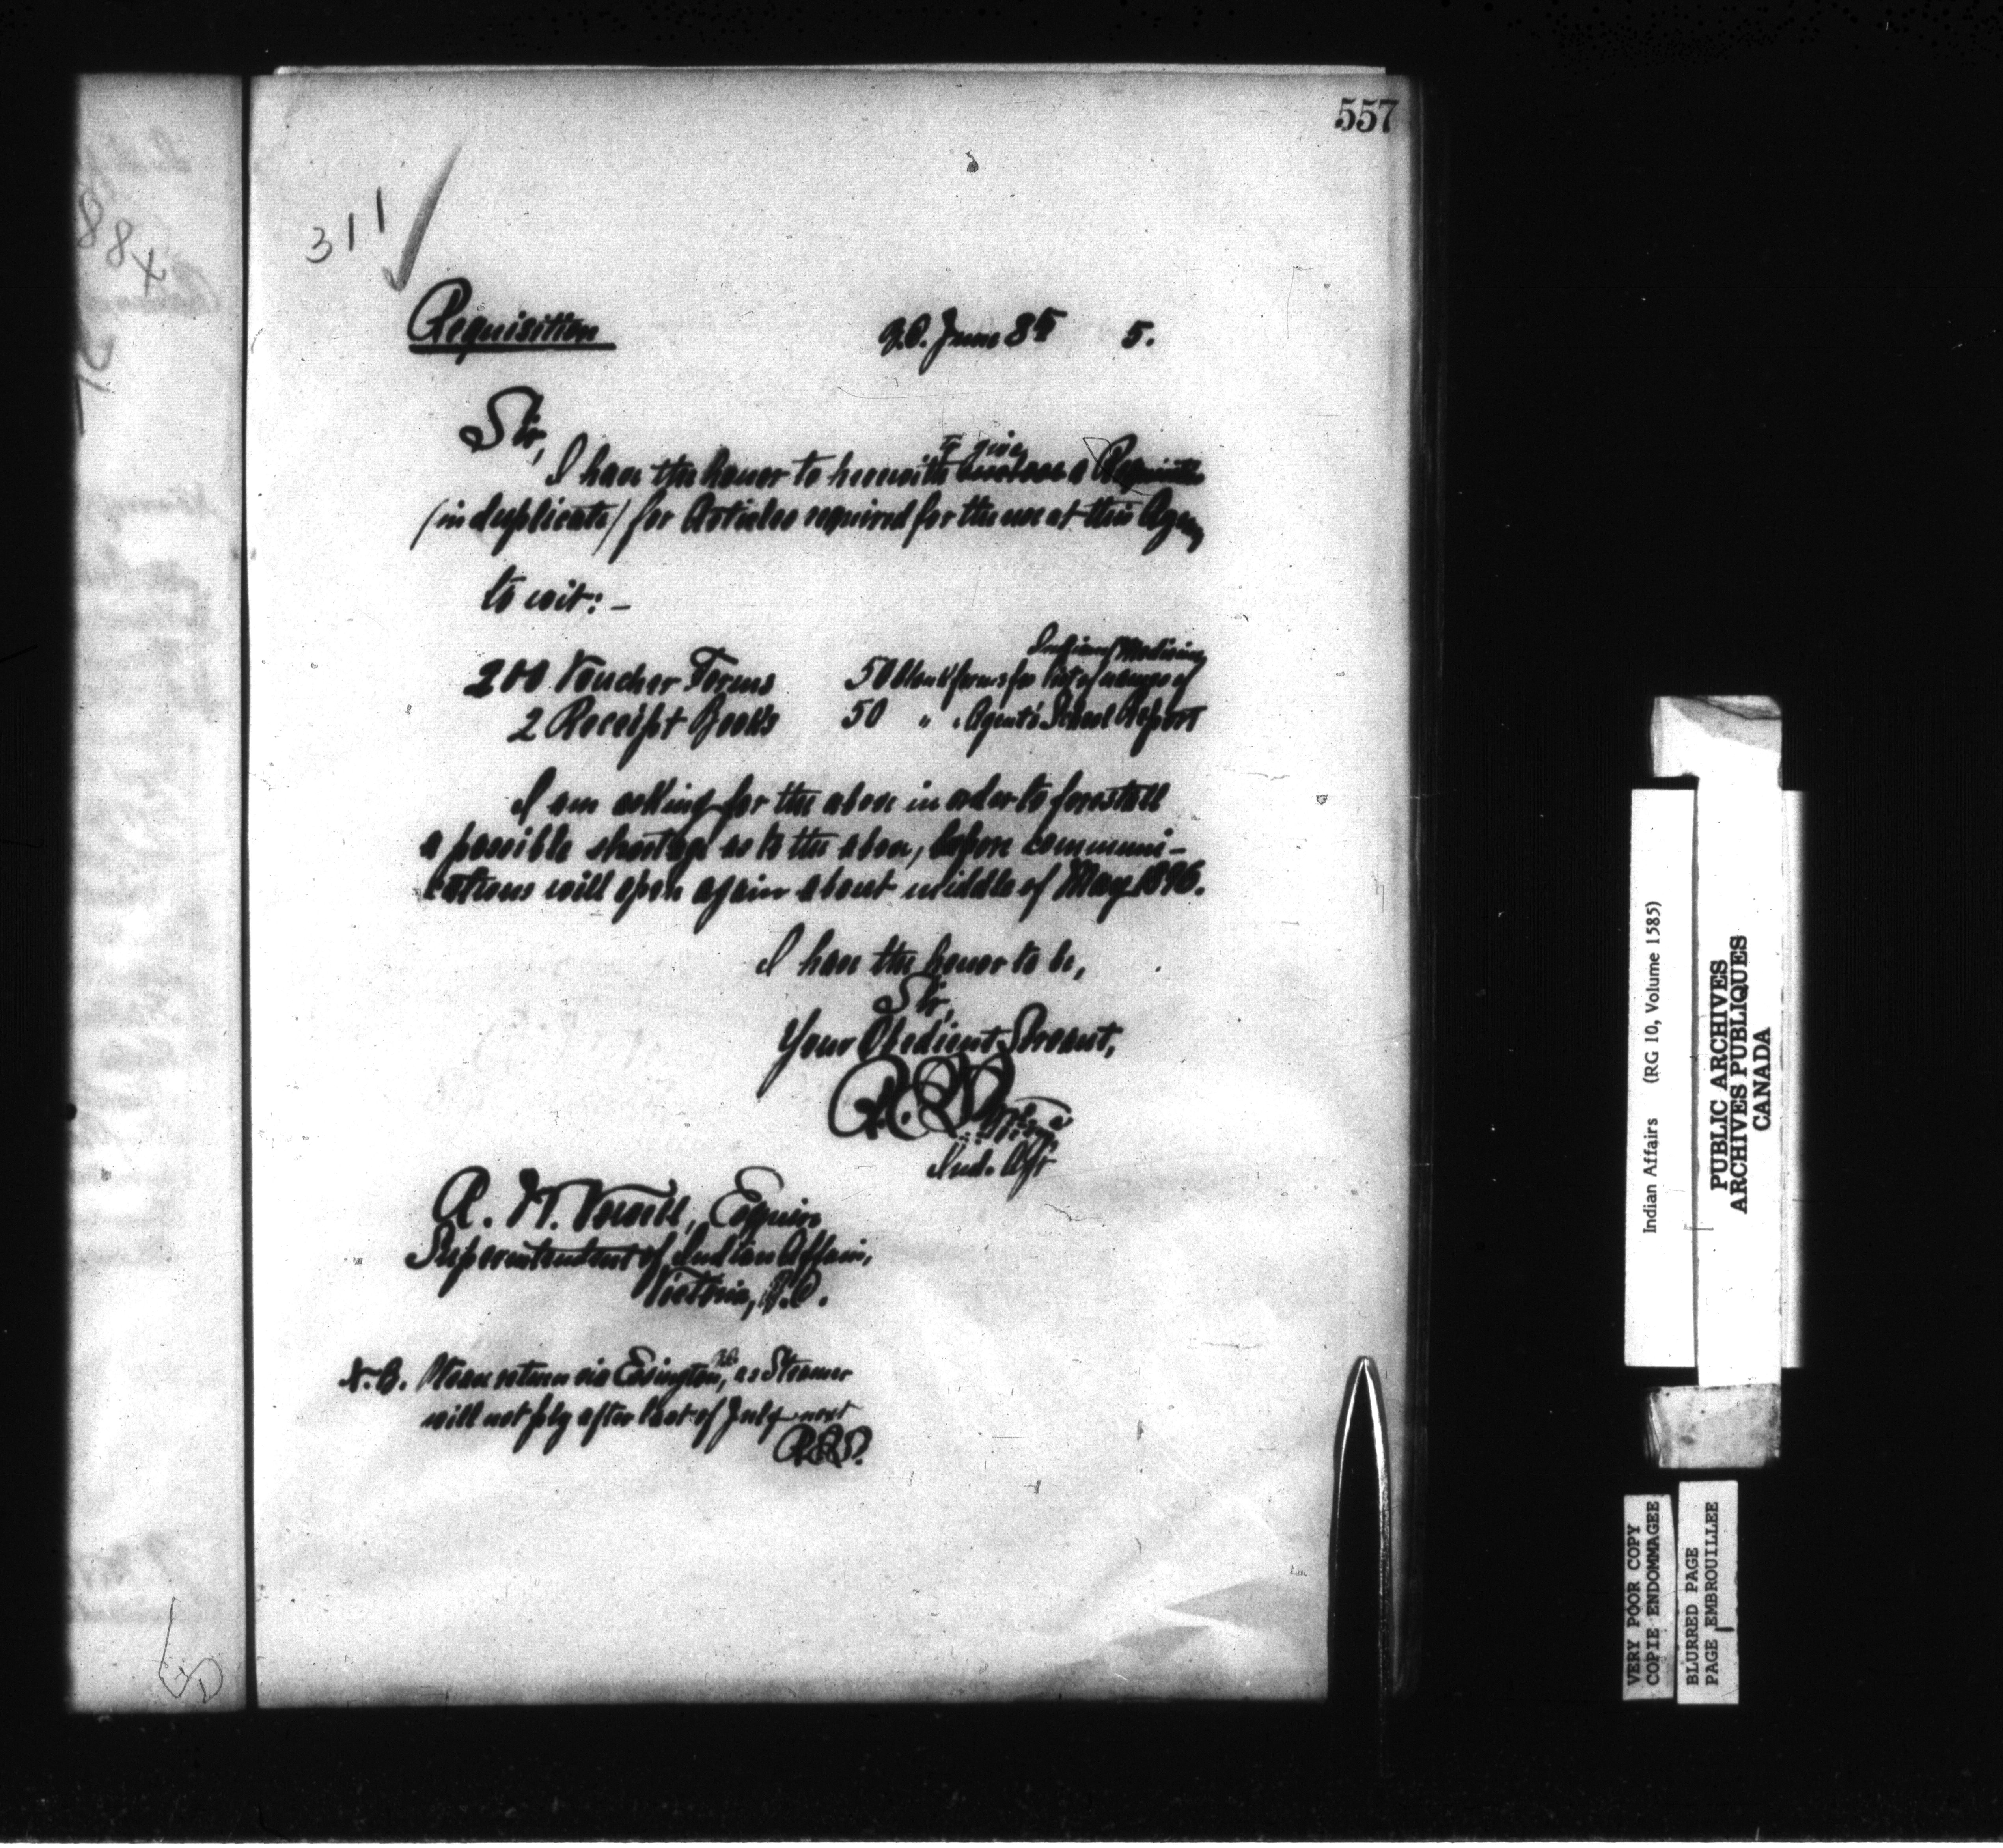 557
311
Requisition
June 8th 5.
Sir,
to give
I have the honor to herewith a Requisition
(in duplicate) for Articles required for the use at this Agency
to wit:—
Indians Medicine
200 Voucher Forms 50 blank forms for list of names of
2 Receipt Books 50 " " Agent's School Report
I am asking for the above in order to forestall
a possible shortage as to the above, before communi-
cations will open again about middle of May 1896.
I have the honor to be,
Sir,
Your Obedient Servant,
Ind. Agt
A. W. Vowell, Esquire,
Superintendent of Indian Affairs,
Victoria, B.C.
N.B. Please return via Essington, as Steamer
will not ply after last of July next
Indian Affairs (RG 10, Volume 1585)
PUBLIC ARCHIVES
ARCHIVES PUBLIQUES
CANADA
VERY POOR COPY
COPIE ENDOMMAGEE
BLURRED PAGE
PAGE EMBROUILLEE